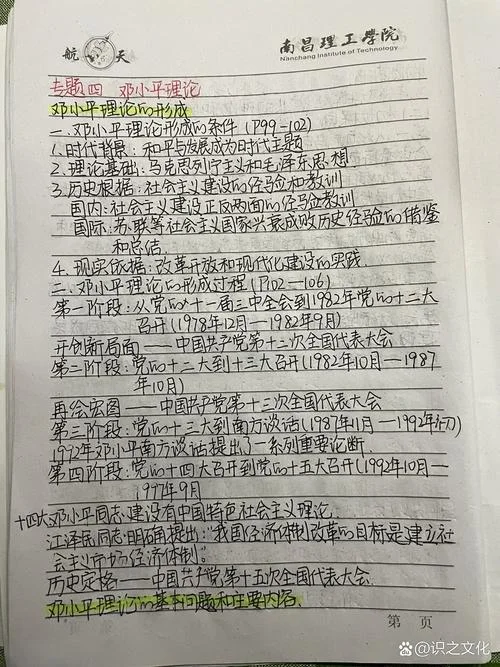 航 天
南昌理工學院
Nanchang Institute of Technology
专题四 邓小平理论
邓小平理论的形成
一.邓小平理论形成的条件(P99-102)
1.时代背景:和平与发展成为时代主题
2.理论基础:马克思列宁主义和毛泽东思想
3.历史根据:社会主义建设的经验和教训
国内:社会主义建设正反两面的经验教训
国际:苏联等社会主义国家兴衰成败历史经验的借鉴
和总结
4.现实依据:改革开放和现代化建设的实践.
二.邓小平理论的形成过程(P102-106)
第一阶段:从党的十一届三中全会到1982年党的十二大
召开(1978年12月—1982年9月)
开创新局面——中国共产党第十二次全国代表大会
第二阶段:党的十二大到十三大召开(1982年10月—1987
年10月)
再绘宏图——中国共产党第十三次全国代表大会
第三阶段:党的十三大到南方谈话(1987年11月—1992年初)
1992年邓小平南方谈话提出了一系列重要论断.
第四阶段:党的十四大召开到党的十五大召开(1992年10月—
1997年9月
十四大邓小平同志建设有中国特色社会主义理论.
江泽民同志明确提出:"我国经济体制改革的目标是建立社
会主义市场经济体制."
历史定格——中国共产党第十五次全国代表大会.
邓小平理论的基本问题和主要内容.
第 页
@识之文化